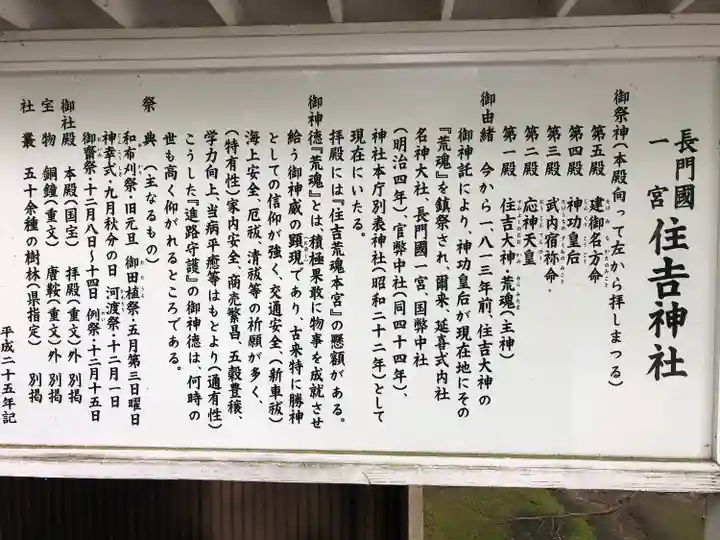 長門國
一宮 住吉神社
御祭神(本殿向って左から拝しまつる)
第五殿 建御名方命
第四殿 神功皇后
第三殿 武内宿祢命
第二殿 応神天皇
第一殿 住吉大神・荒魂(主神)
御由緒 今から一、八一三年前、住吉大神の
御神託により、神功皇后が現在地にその
『荒魂』を鎮祭され、爾来、延喜式内社
名神大社、長門國一宮、国幣中社
(明治四年)、官幣中社(同四十四年)、
神社本庁別表神社(昭和二十二年)として
現在にいたる。
拝殿には『住吉荒魂本宮』の懸額がある。
御神徳『荒魂』とは、積極果敢に物事を成就させ
給う御神威の顕現であり、古来特に勝神
としての信仰が強く、交通安全(新車祓)
海上安全、厄祓、清祓等の祈願が多く、
(特有性)家内安全、商売繁昌、五穀豊穣、
学力向上、当病平癒等はもとより(通有性)
こうした『進路守護』の御神徳は、何時の
世も高く仰がれるところである。
祭典(主なるもの)
和布刈祭・旧元旦 御田植祭・五月第三日曜日
神幸式・九月秋分の日 河渡祭・十二月一日
御齋祭・十二月八日〜十四日 例祭・十二月十五日
御社殿 本殿(国宝) 拝殿(重文)外 別掲
宝物 銅鐘(重文) 唐鞍(重文)外 別掲
社叢 五十余種の樹林(県指定) 別掲
平成二十五年記